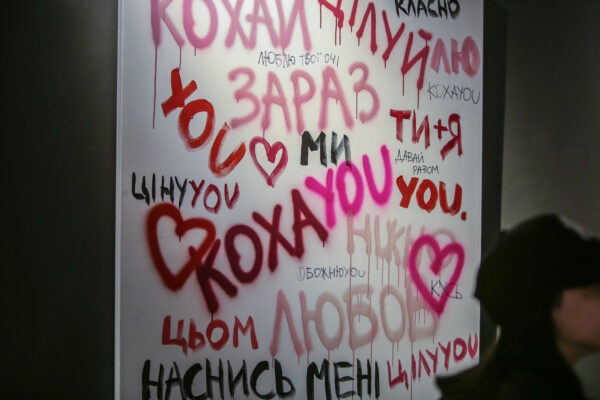 КОХАЙ ЦІЛУЙ
КЛАСНО
ЛЮБЛЮ ТВОЇ ОЧІ
ЛЮ
ЗАРАЗ
КОХАYOU
YOU
ТИ+Я
МИ
ДАВАЙ
РАЗОМ
ЦІНУYOU
YOU
YOU.
КОХАYOU
НІЖНО
ОБОЖНЮYOU
КУСЬ
ЛЮБОВ
ЦЬОМ
ЦІЛУYOU
НАСНИСЬ МЕНІ